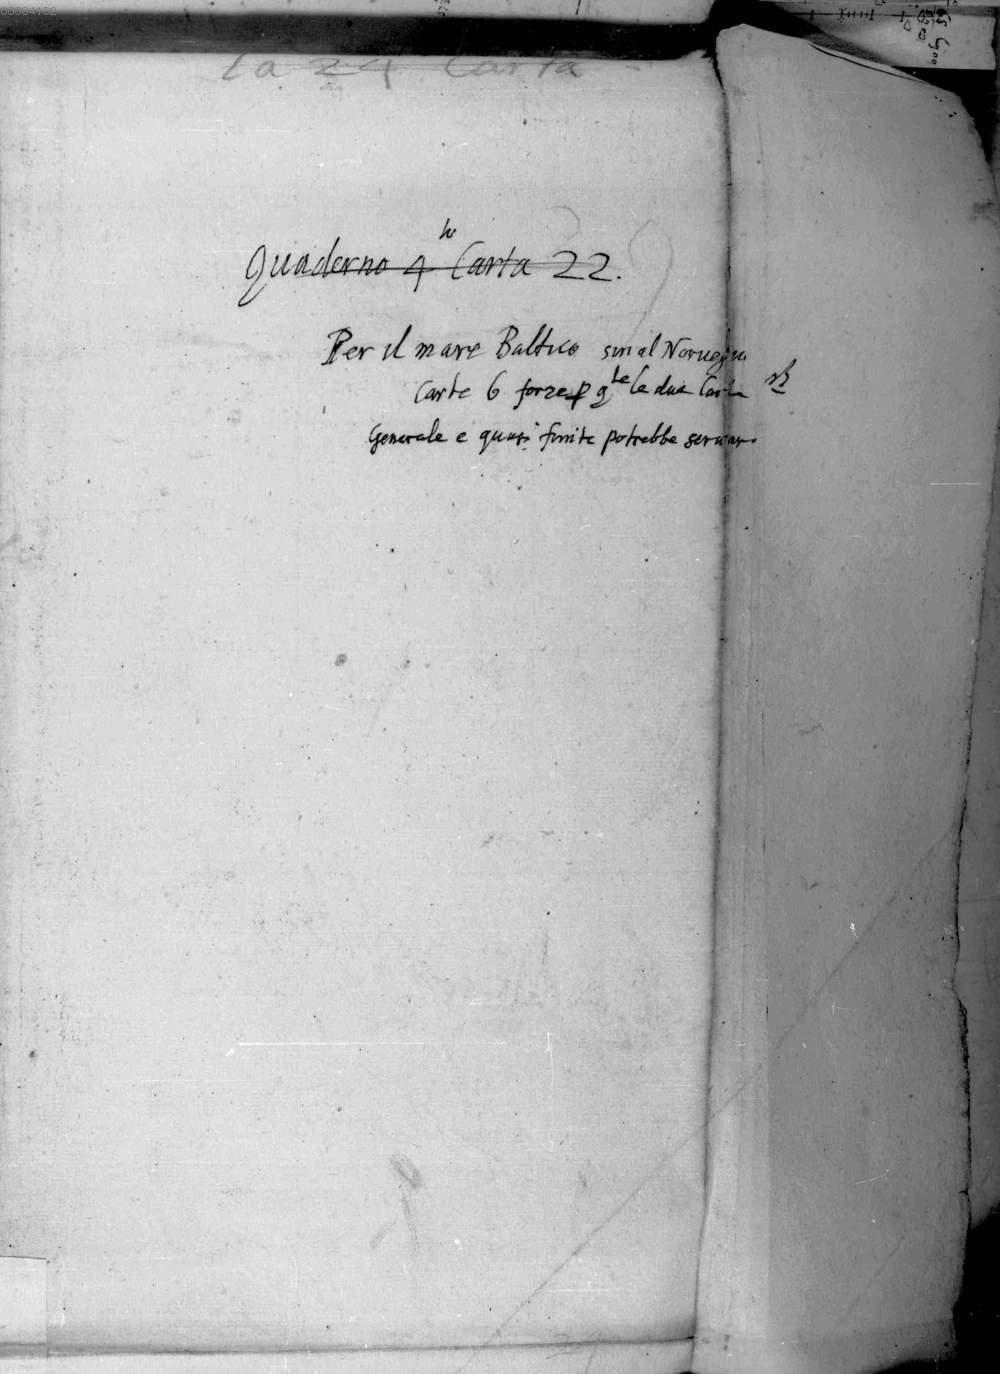 La 24 Carta
Quaderno 4to Carta 22.
Per il mare Baltico sin al Noruegia
Carte 6 forze p qte le due Carte
Generale e quasi finite potrebbe seruar